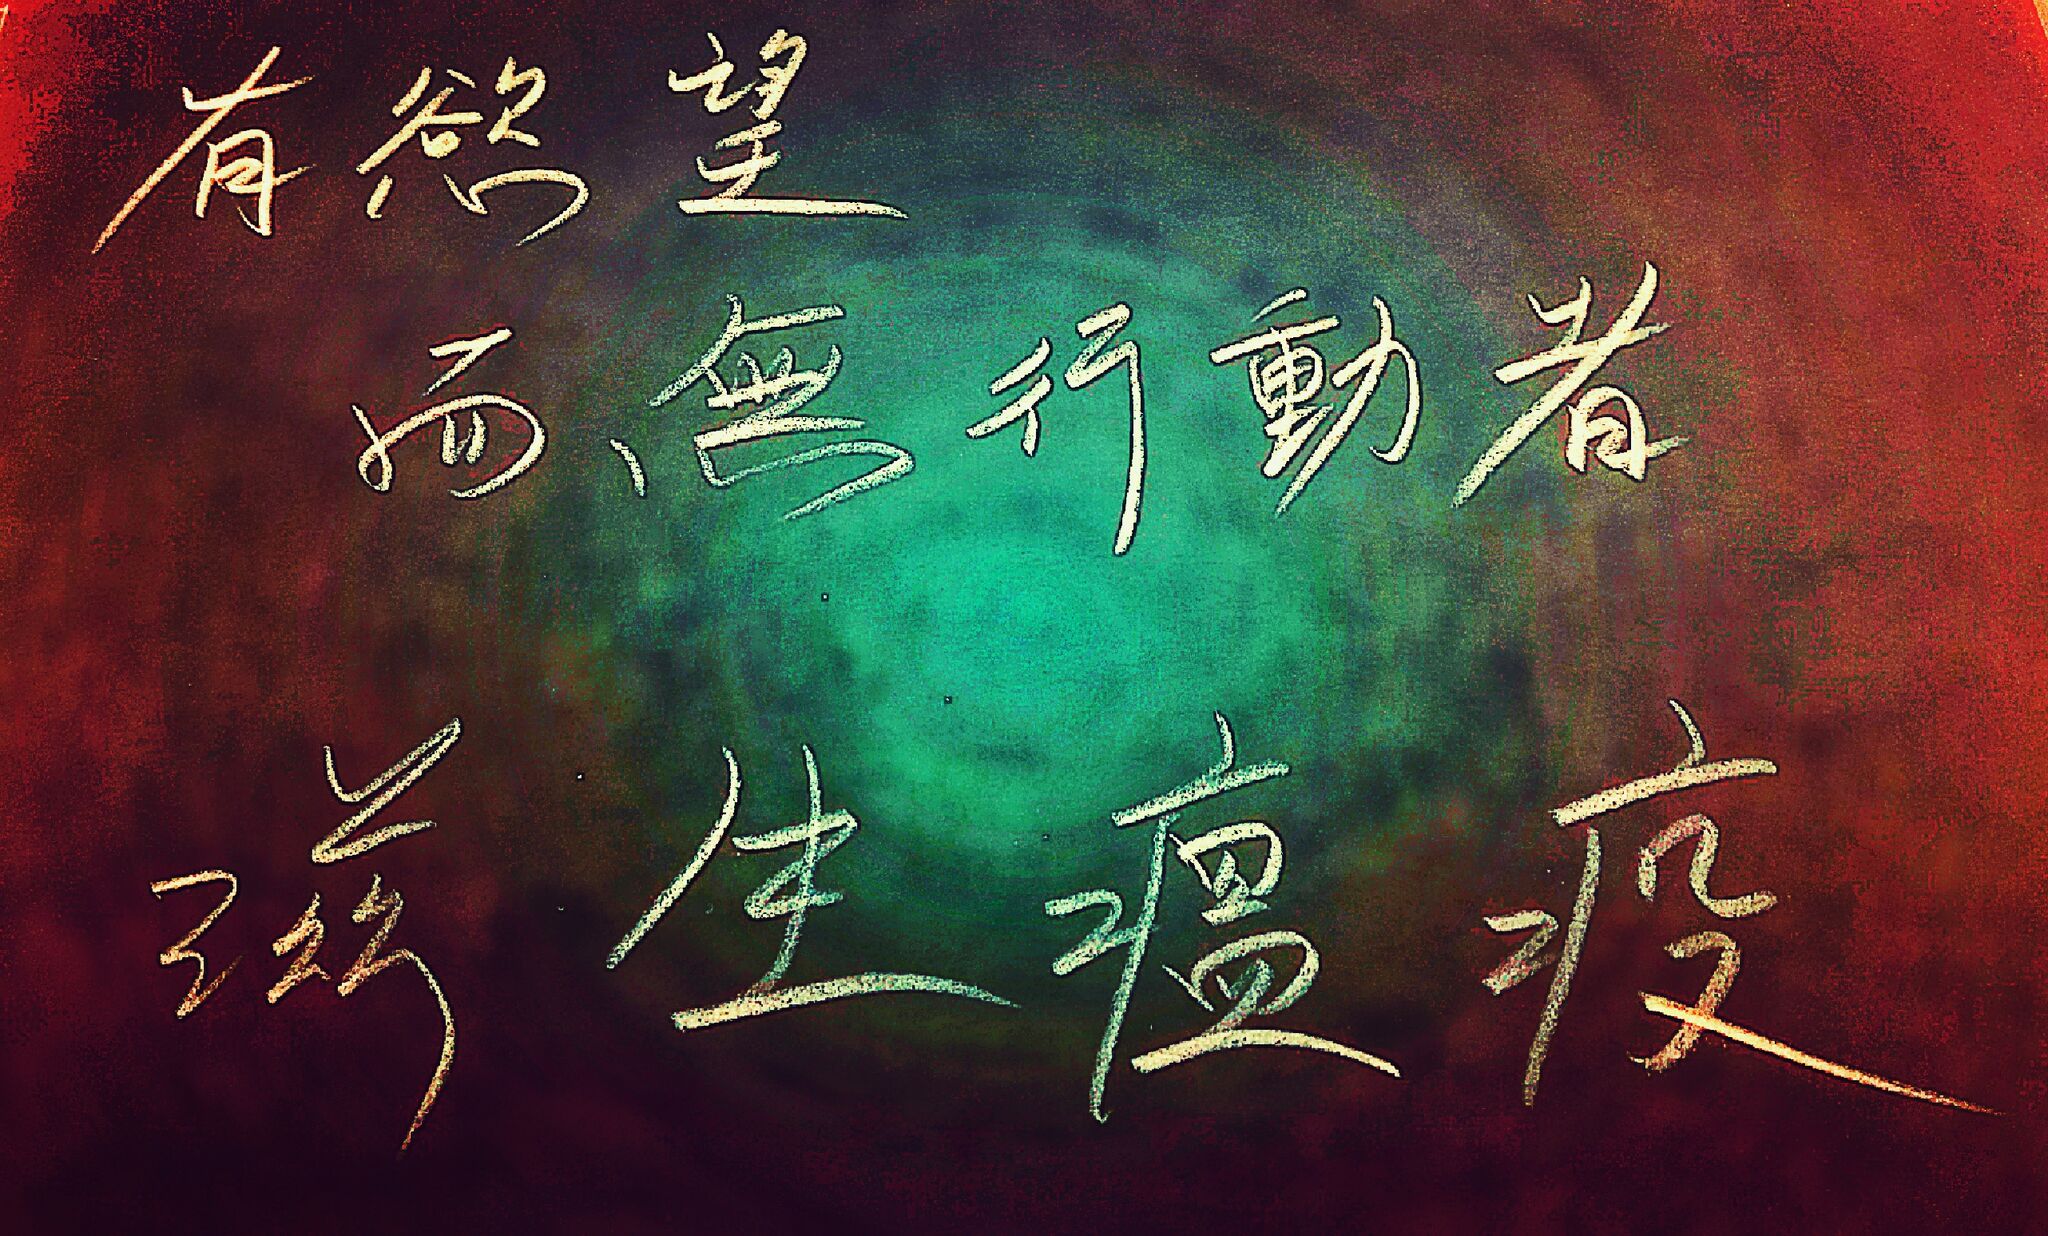 有慾望
而無行動者
孳生瘟疫